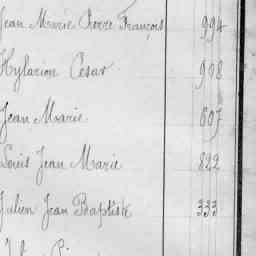 Jean Marie Pierre François 994
Hylarion César 908
Jean Marie 607
Louis Jean Marie 822
Julien Jean Baptiste 333